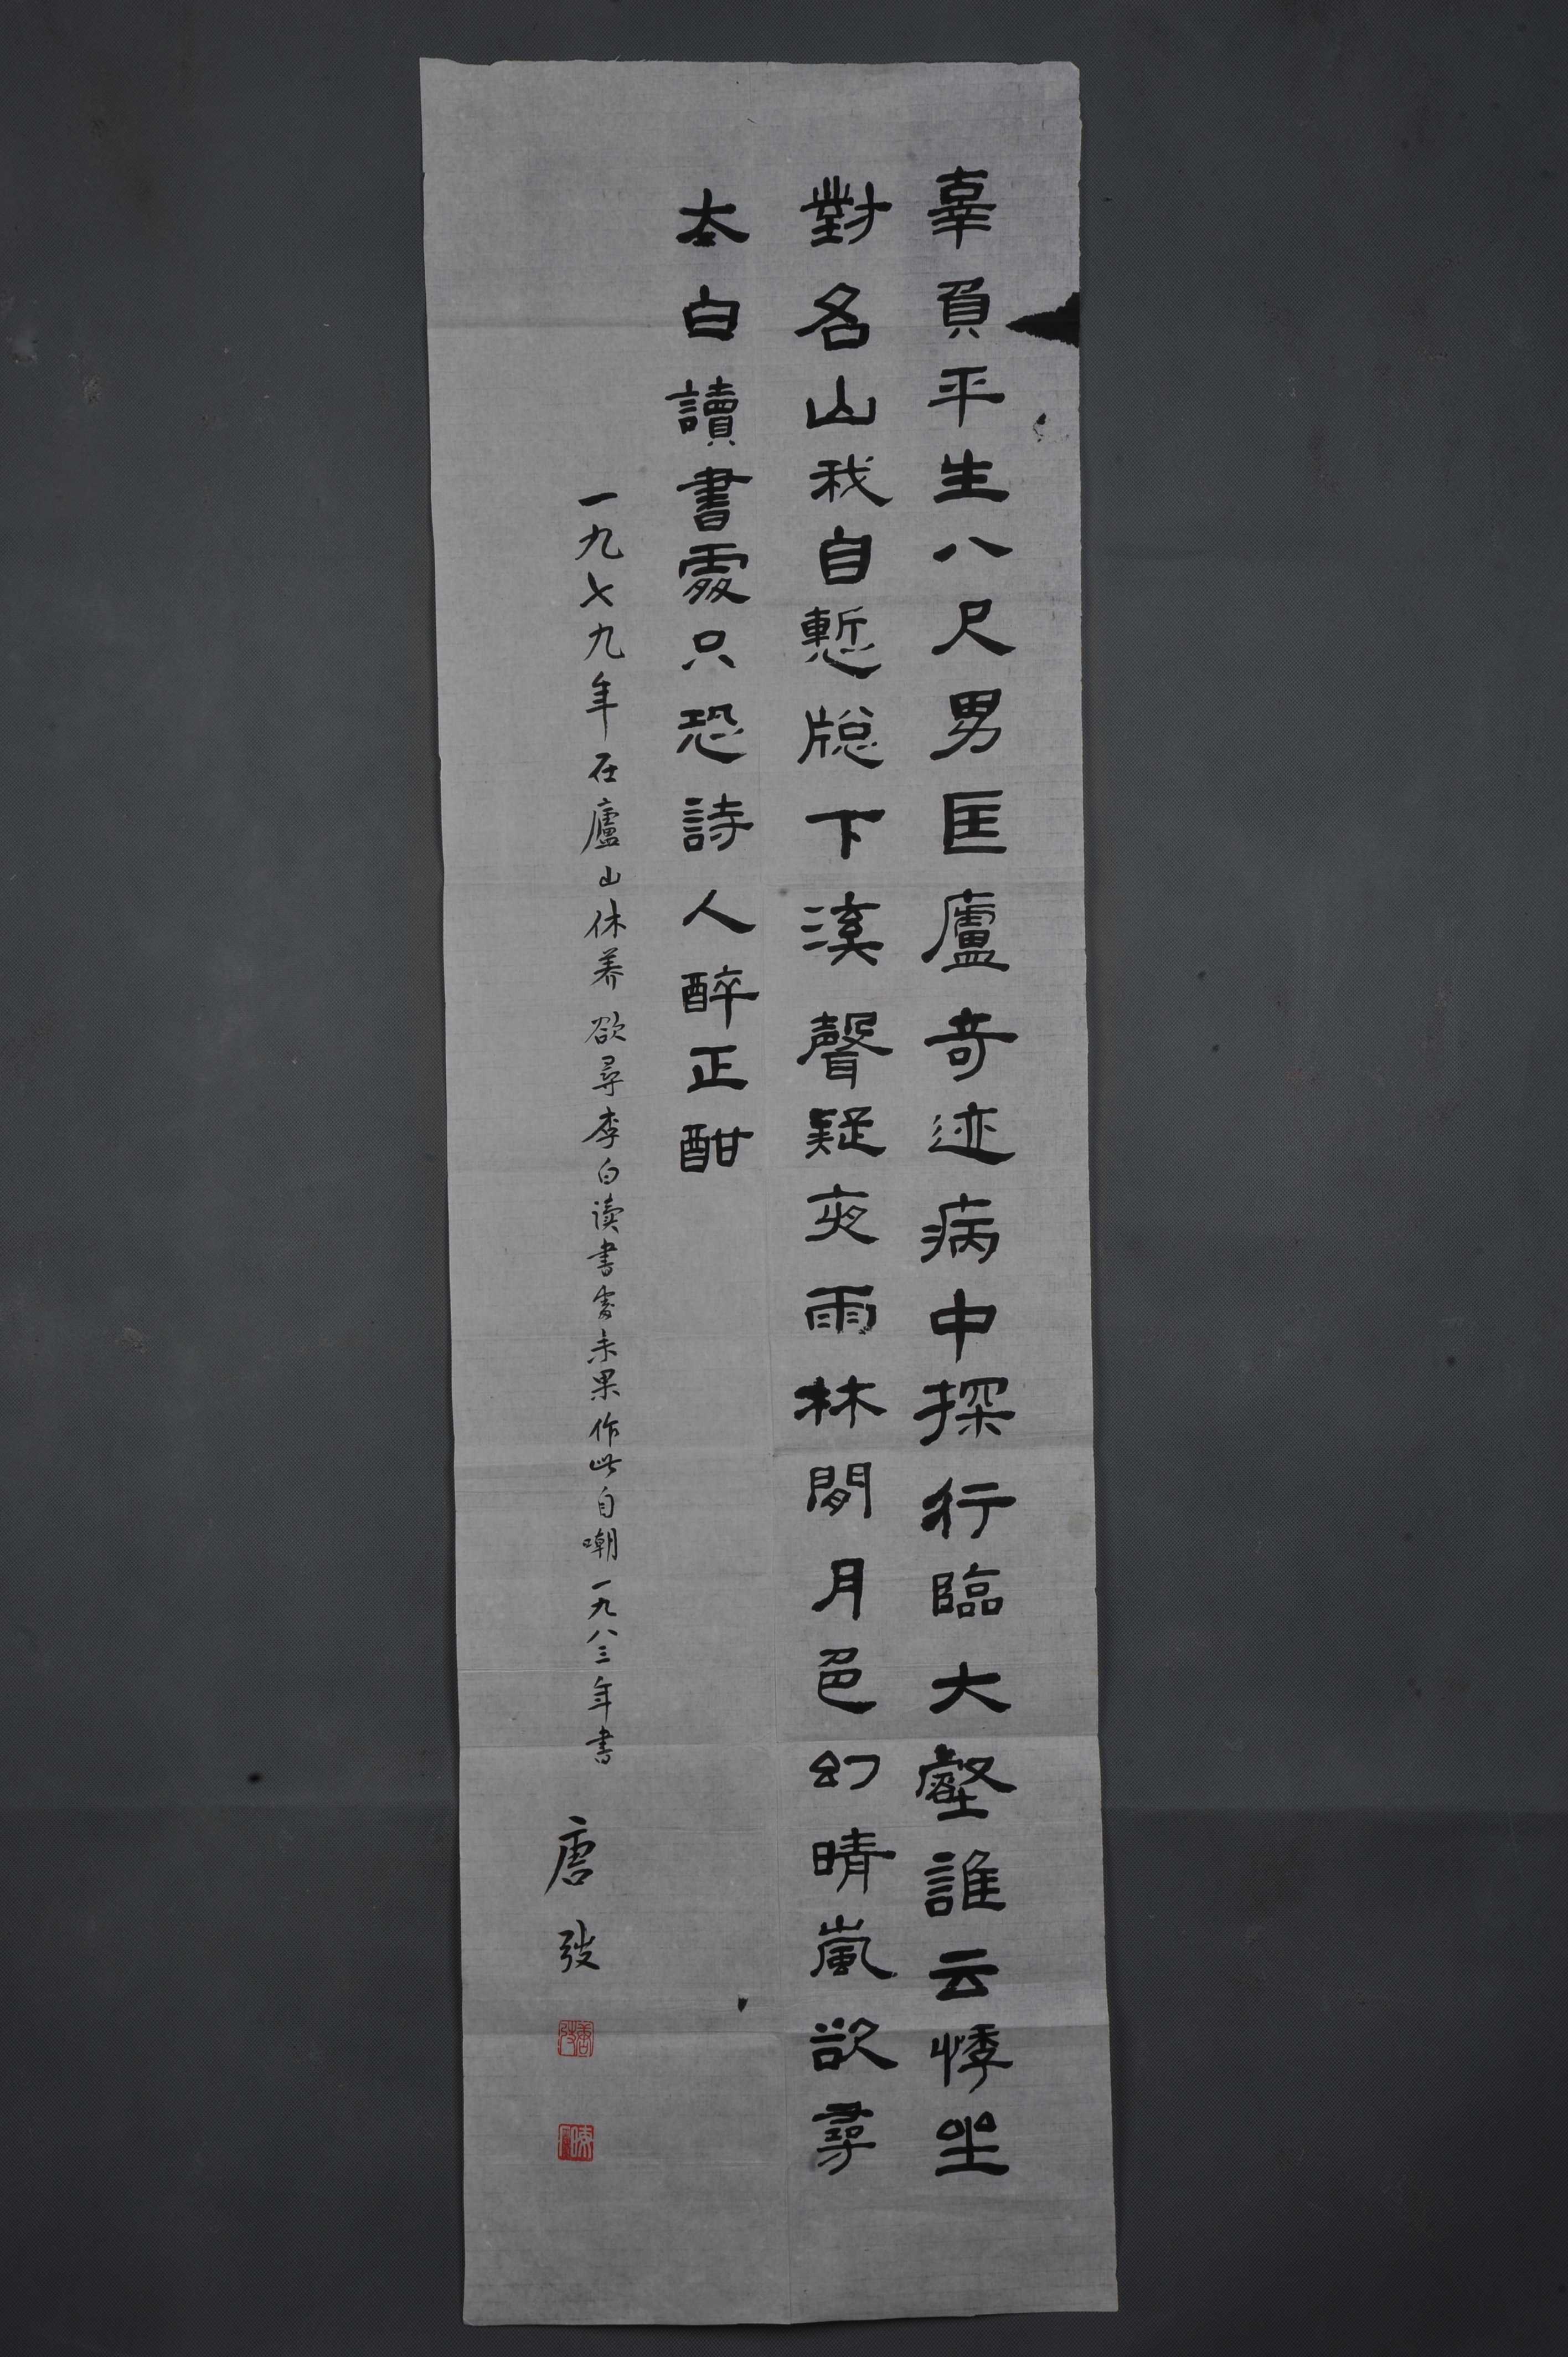 辜負平生八尺男匡廬奇迹病中探行臨大壑誰云悸坐
對名山我自慙牕下溪聲疑夜雨林間月色幻晴嵐欲尋
太白讀書處只恐詩人醉正酣
一九七九年在廬山休养欲尋李白读書處未果作此自嘲一九八三年書
唐弢
唐弢